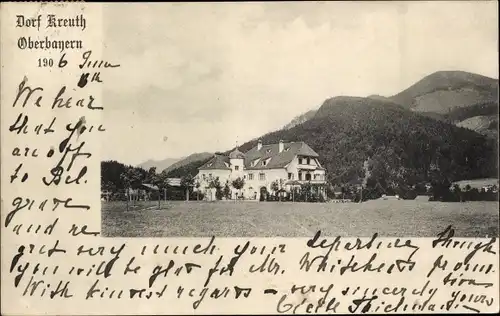 Dorf Kreuth
Oberbayern
1906 June
We hear
that you
are off
to Bel
grave
and re
gret very much your departure though
you will be glad for Mr. Whitehead's promo
tion
With kindest regards - very sincerely yours